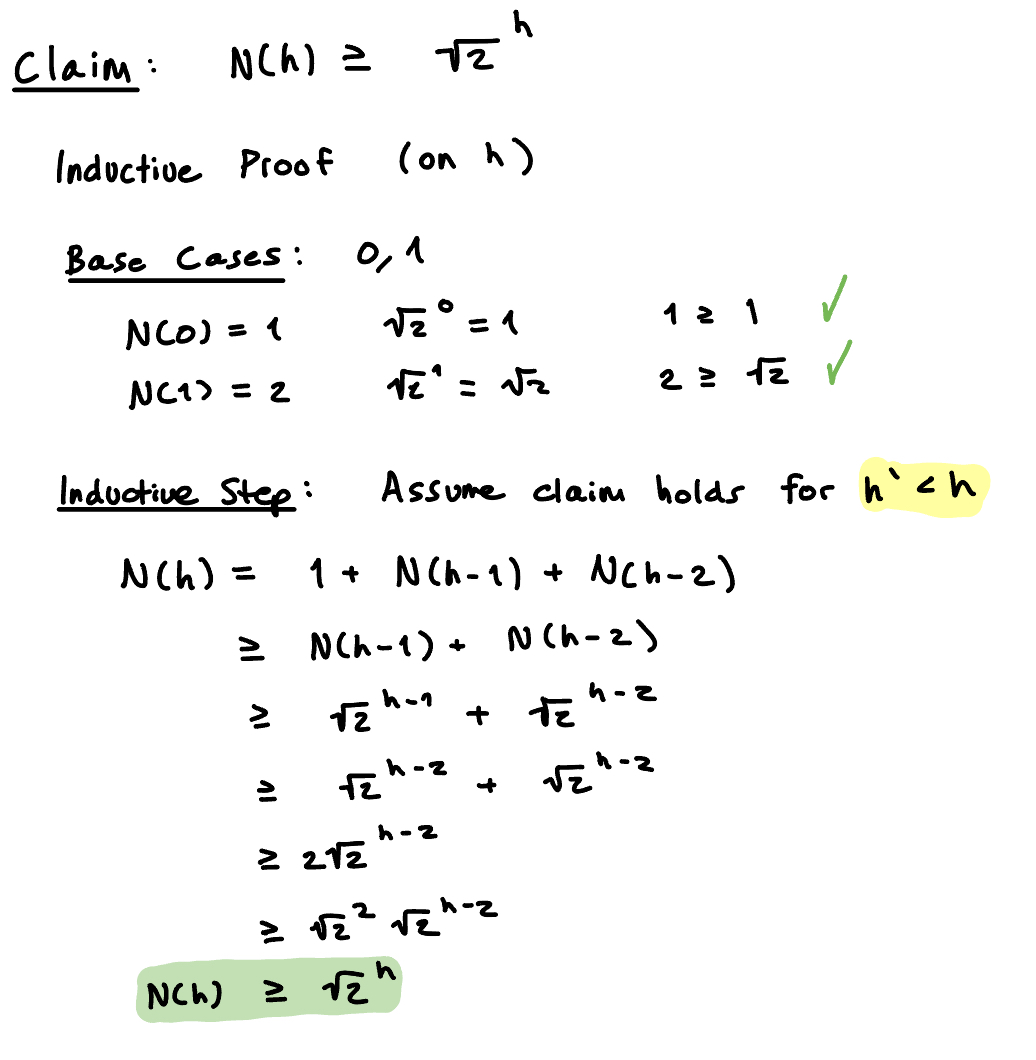 Claim: N(h) ≥ √2^h
Inductive Proof (on h)
Base Cases: 0, 1
N(0) = 1 √2^0 = 1 1 ≥ 1 ✓
N(1) = 2 √2^1 = √2 2 ≥ √2 ✓
Inductive Step: Assume claim holds for h' < h
N(h) = 1 + N(h-1) + N(h-2)
≥ N(h-1) + N(h-2)
≥ √2^(h-1) + √2^(h-2)
≥ √2^(h-2) + √2^(h-2)
≥ 2√2^(h-2)
≥ √2^2 √2^(h-2)
N(h) ≥ √2^h